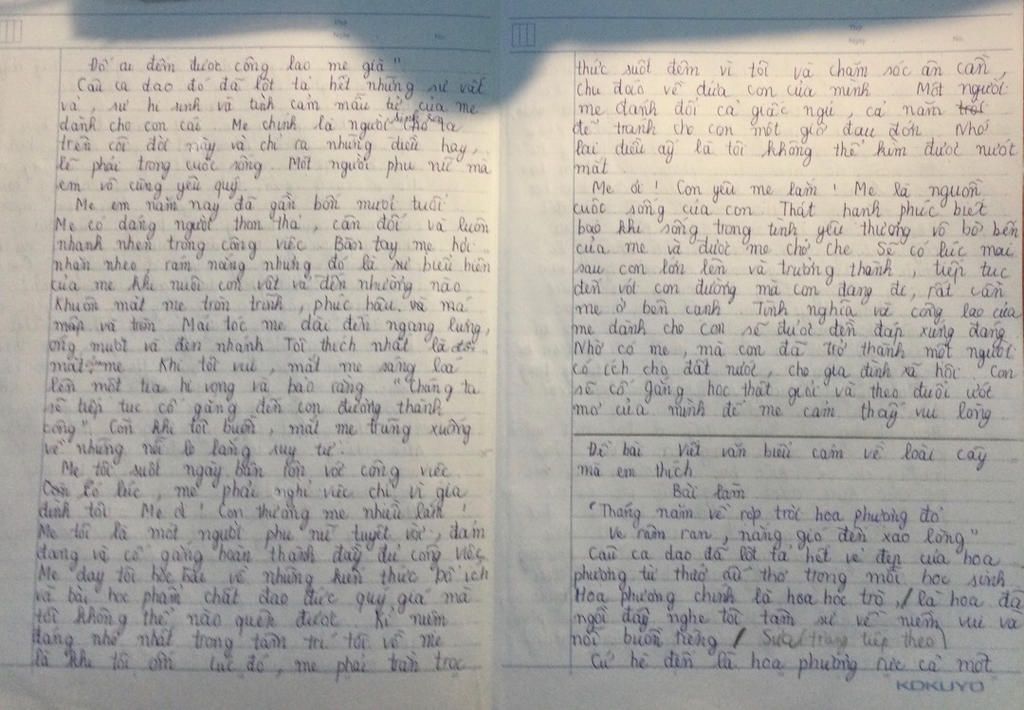 Đố ai đếm được công lao mẹ già"
Câu ca dao đó đã lột tả hết những sự vất
vả, sự hi sinh và tình cảm mẫu tử của mẹ
dành cho con cái. Mẹ chính là người sinh ra
trên cõi đời này và chỉ ra những điều hay,
lẽ phải trong cuộc sống. Một người phụ nữ mà
em vô cùng yêu quý.
Mẹ em năm nay đã gần bốn mươi tuổi
Mẹ có dáng người thon thả, cân đối và luôn
nhanh nhẹn trong công việc. Bàn tay mẹ hơi
nhăn nheo, rám nắng nhưng đó là sự biểu hiện
của mẹ khi nuôi con vất vả đến nhường nào
Khuôn mặt mẹ tròn trĩnh, phúc hậu và má
mập và tròn Mái tóc mẹ dài đến ngang lưng,
óng mượt và đen nhánh Tôi thích nhất là đôi
mắt mẹ Khi tôi vui, mắt mẹ sáng loá
lên một tia hi vọng và bảo rằng "Chúng ta
sẽ tiếp tục cố gắng đến con đường thành
công". Còn khi tôi buồn, mắt mẹ trũng xuống
về những nỗi lo lắng suy tư.
Mẹ tôi suốt ngày bận rộn với công việc
Còn có lúc, mẹ phải nghỉ việc chỉ vì gia
đình tôi Mẹ ơi! Con thương mẹ nhiều lắm!
Mẹ tôi là một người phụ nữ tuyệt vời, đảm
đang và cố gắng hoàn thành đầy đủ công việc
Mẹ dạy tôi học hỏi về những kiến thức bổ ích
và bài học phẩm chất đạo đức quý giá mà
tôi không thể nào quên được. Kỉ niệm
đáng nhớ nhất trong tâm trí tôi về mẹ
là khi tôi ốm Lúc đó, mẹ phải trằn trọc
thức suốt đêm vì tôi và chăm sóc ân cần,
chu đáo về đứa con của mình Một người
mẹ đánh đổi cả giấc ngủ, cả năm trời
để tránh cho con một giờ đau đớn Nhớ
lại điều ấy là tôi không thể kìm được nước
mắt.
Mẹ ơi! Con yêu mẹ lắm! Mẹ là nguồn
cuộc sống của con Thật hạnh phúc biết
bao khi sống trong tình yêu thương vô bờ bến
của mẹ và được mẹ chở che Sẽ có lúc mai
sau con lớn lên và trưởng thành, tiếp tục
đến với con đường mà con đang đi, rất cần
mẹ ở bên cạnh Tình nghĩa và công lao của
mẹ dành cho con sẽ được đền đáp xứng đáng
Nhờ có mẹ, mà con đã trở thành một người
có ích cho đất nước, cho gia đình xã hội Con
sẽ cố gắng học thật giỏi và theo đuổi ước
mơ của mình để mẹ cảm thấy vui lòng.
Đề bài Viết văn biểu cảm về loài cây
mà em thích
Bài làm
"Tháng năm về rợp trời hoa phượng đỏ
Ve râm ran, nắng gió đến xao lòng"
Câu ca dao đã lột tả hết vẻ đẹp của hoa
phượng từ thưở ấu thơ trong mỗi học sinh
Hoa phượng chính là hoa học trò, / là hoa đã
ngồi đấy nghe tôi tâm sự về niềm vui và
nỗi buồn riêng / Sửa (trang tiếp theo)
Cứ hè đến là hoa phượng rực cả một
KOKUYO